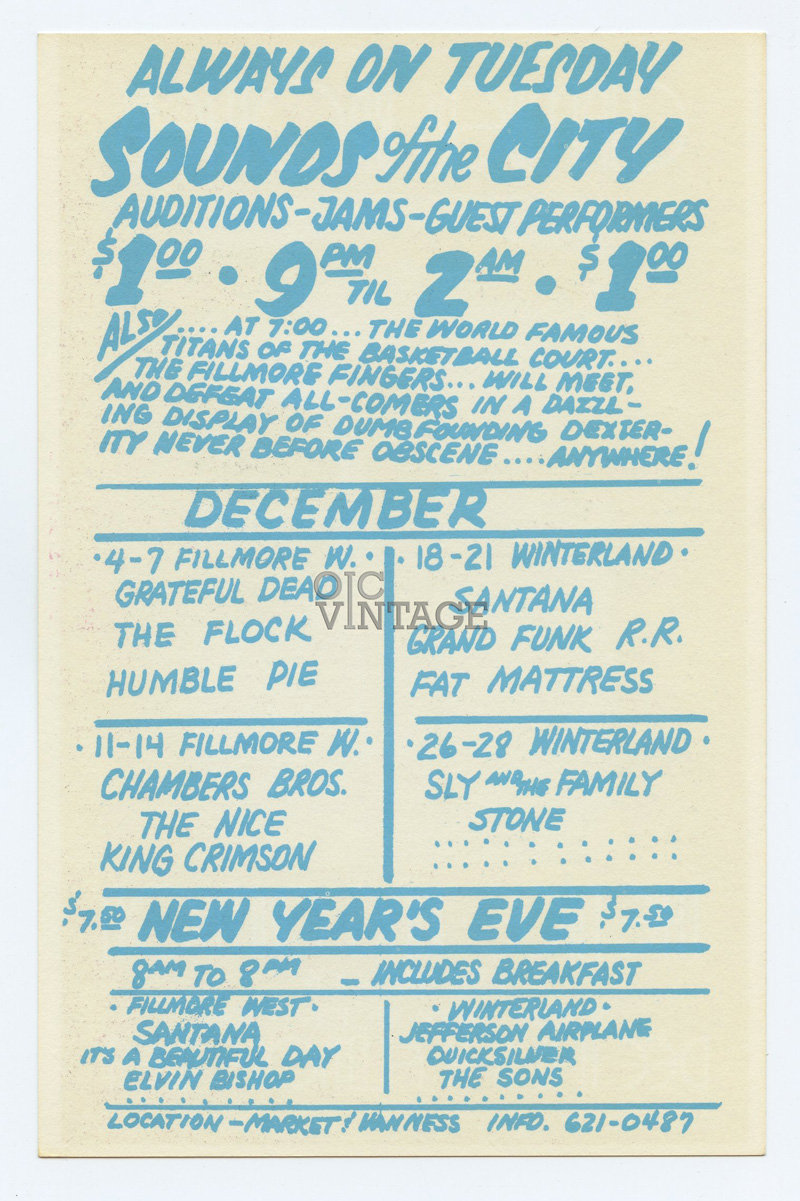 ALWAYS ON TUESDAY
SOUNDS of the CITY
AUDITIONS-JAMS-GUEST PERFORMERS
$1.00 • 9 PM TIL 2 AM • $1.00
ALSO/ .... AT 7:00 ... THE WORLD FAMOUS
TITANS OF THE BASKETBALL COURT....
THE FILLMORE FINGERS... WILL MEET,
AND DEFEAT ALL-COMERS IN A DAZZL-
ING DISPLAY OF DUMBFOUNDING DEXTER-
ITY NEVER BEFORE OBSCENE .... ANYWHERE!
DECEMBER
• 4-7 FILLMORE W. •
GRATEFUL DEAD
THE FLOCK
HUMBLE PIE
• 18-21 WINTERLAND •
SANTANA
GRAND FUNK R.R.
FAT MATTRESS
OJC
VINTAGE
• 11-14 FILLMORE W. •
CHAMBERS BROS.
THE NICE
KING CRIMSON
• 26-28 WINTERLAND •
SLY AND THE FAMILY
STONE
$7.50 NEW YEAR'S EVE $7.50
8 AM TO 8 PM – INCLUDES BREAKFAST
• FILLMORE WEST •
SANTANA
IT'S A BEAUTIFUL DAY
ELVIN BISHOP
• WINTERLAND •
JEFFERSON AIRPLANE
QUICKSILVER
THE SONS
LOCATION – MARKET & VAN NESS INFO. 621-0487